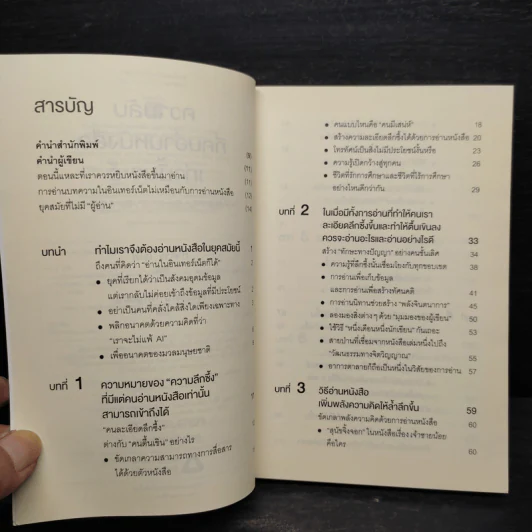 สารบัญ
คำนำสำนักพิมพ์ (9)
คำนำผู้เขียน (11)
ตอนนี้แหละที่เราควรหยิบหนังสือขึ้นมาอ่าน (11)
การอ่านบทความในอินเทอร์เน็ตไม่เหมือนกับการอ่านหนังสือ (12)
ยุคสมัยที่ไม่มี "ผู้อ่าน" (14)
บทนำ ทำไมเราจึงต้องอ่านหนังสือในยุคสมัยนี้ 1
ถึงคนที่คิดว่า "อ่านในอินเทอร์เน็ตก็ได้"
• ยุคที่เรียกได้ว่าเป็นสังคมอุดมข้อมูล
แต่เรากลับไม่ค่อยเข้าถึงข้อมูลที่มีประโยชน์
• อย่าเป็นคนที่คลั่งไคล้สิ่งใดเพียงเฉพาะทาง
• พลิกอนาคตด้วยความคิดที่ว่า
"เราจะไม่แพ้ AI"
• เพื่ออนาคตของมวลมนุษยชาติ
บทที่ 1 ความหมายของ "ความลึกซึ้ง"
ที่มีแต่คนอ่านหนังสือเท่านั้น
สามารถเข้าถึงได้
"คนละเอียดลึกซึ้ง"
ต่างกับ "คนตื้นเขิน" อย่างไร
• ขัดเกลาความสามารถทางการสื่อสาร
ได้ด้วยตัวหนังสือ
• คนแบบไหนคือ "คนมีเสน่ห์" 18
• สร้างความละเอียดลึกซึ้งได้ด้วยการอ่านหนังสือ 20
• โทรทัศน์เป็นสิ่งไม่มีประโยชน์งั้นหรือ 23
• ความรู้เปิดกว้างสู่ทุกคน 26
• ชีวิตที่รักการศึกษาและชีวิตที่ไร้การศึกษา
อย่างไหนดีกว่ากัน 29
บทที่ 2 ในเมื่อมีทั้งการอ่านที่ทำให้คนเรา
ละเอียดลึกซึ้งขึ้นและทำให้ตื้นเขินลง
ควรจะอ่านอะไรและอ่านอย่างไรดี 33
สร้าง "ทักษะทางปัญญา" อย่างคนชั้นเลิศ 34
• ความรู้ที่ลึกซึ้งนั้นเชื่อมโยงกับทุกขอบเขต 38
• การอ่านเพื่อเก็บข้อมูล
และการอ่านเพื่อสร้างทัศนคติ 41
• การอ่านนิทานช่วยสร้าง "พลังจินตนาการ" 45
• ลองมองสิ่งต่าง ๆ ด้วย "มุมมองของผู้เขียน" 47
• ใช้วิธี "หนึ่งเดือนหนึ่งนักเขียน" กันเถอะ 50
• สายป่านที่เชื่อมจากหนังสือเล่มหนึ่งไปถึง
"วัฒนธรรมทางจิตวิญญาณ" 55
• อาการตาลายก็ถือเป็นหนึ่งในวิสัยของการอ่าน 57
บทที่ 3 วิธีอ่านหนังสือ
เพิ่มพลังความคิดให้ล้ำลึกขึ้น 59
ขัดเกลาพลังความคิดด้วยการอ่านหนังสือ 60
• "สุนัขจิ้งจอก" ในหนังสือเรื่อง เจ้าชายน้อย
คือใคร 60